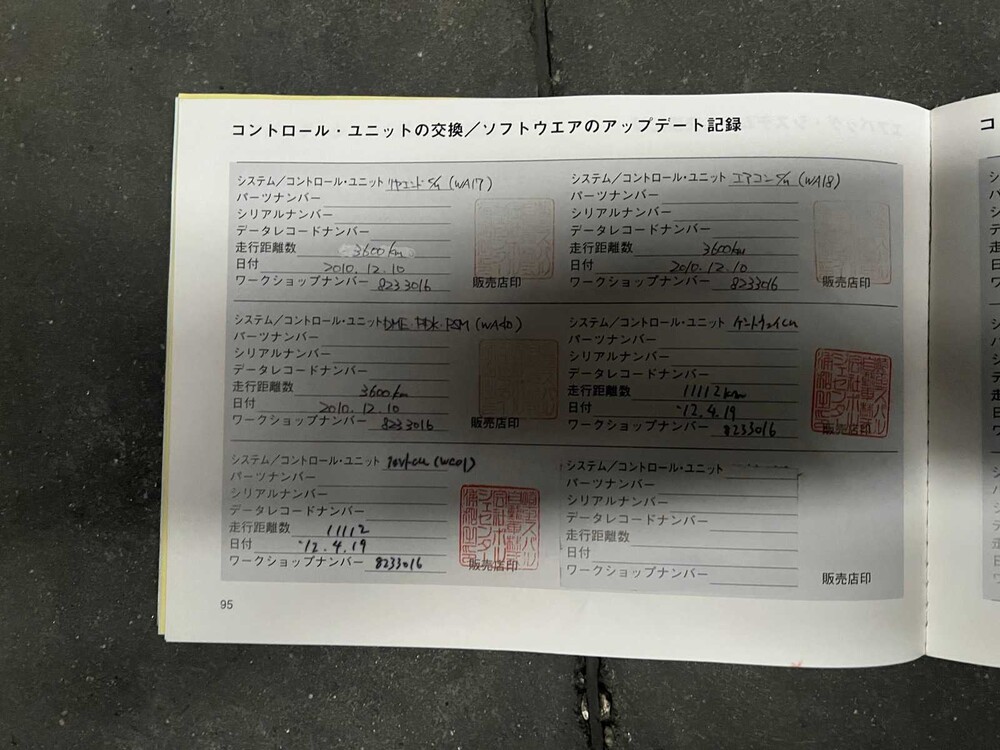 コントロール・ユニットの交換／ソフトウエアのアップデート記録
システム／コントロール・ユニット リヤエンド (WA17)
パーツナンバー
シリアルナンバー
データレコードナンバー
走行距離数 3600km
日付 2010.12.10
ワークショップナンバー 8233016
販売店印
システム／コントロール・ユニット エアコン (WA18)
パーツナンバー
シリアルナンバー
データレコードナンバー
走行距離数 3600km
日付 2010.12.10
ワークショップナンバー 8233016
販売店印
システム／コントロール・ユニット DME PDK PSM (WA40)
パーツナンバー
シリアルナンバー
データレコードナンバー
走行距離数 3600km
日付 2010.12.10
ワークショップナンバー 8233016
販売店印
システム／コントロール・ユニット ゲートウェイCU
パーツナンバー
シリアルナンバー
データレコードナンバー
走行距離数 11112km
日付 '12.4.19
ワークショップナンバー 8233016
販売店印
システム／コントロール・ユニット フロントCU (WC01)
パーツナンバー
シリアルナンバー
データレコードナンバー
走行距離数 11112
日付 '12.4.19
ワークショップナンバー 8233016
販売店印
システム／コントロール・ユニット
パーツナンバー
シリアルナンバー
データレコードナンバー
走行距離数
日付
ワークショップナンバー
販売店印
95
コ